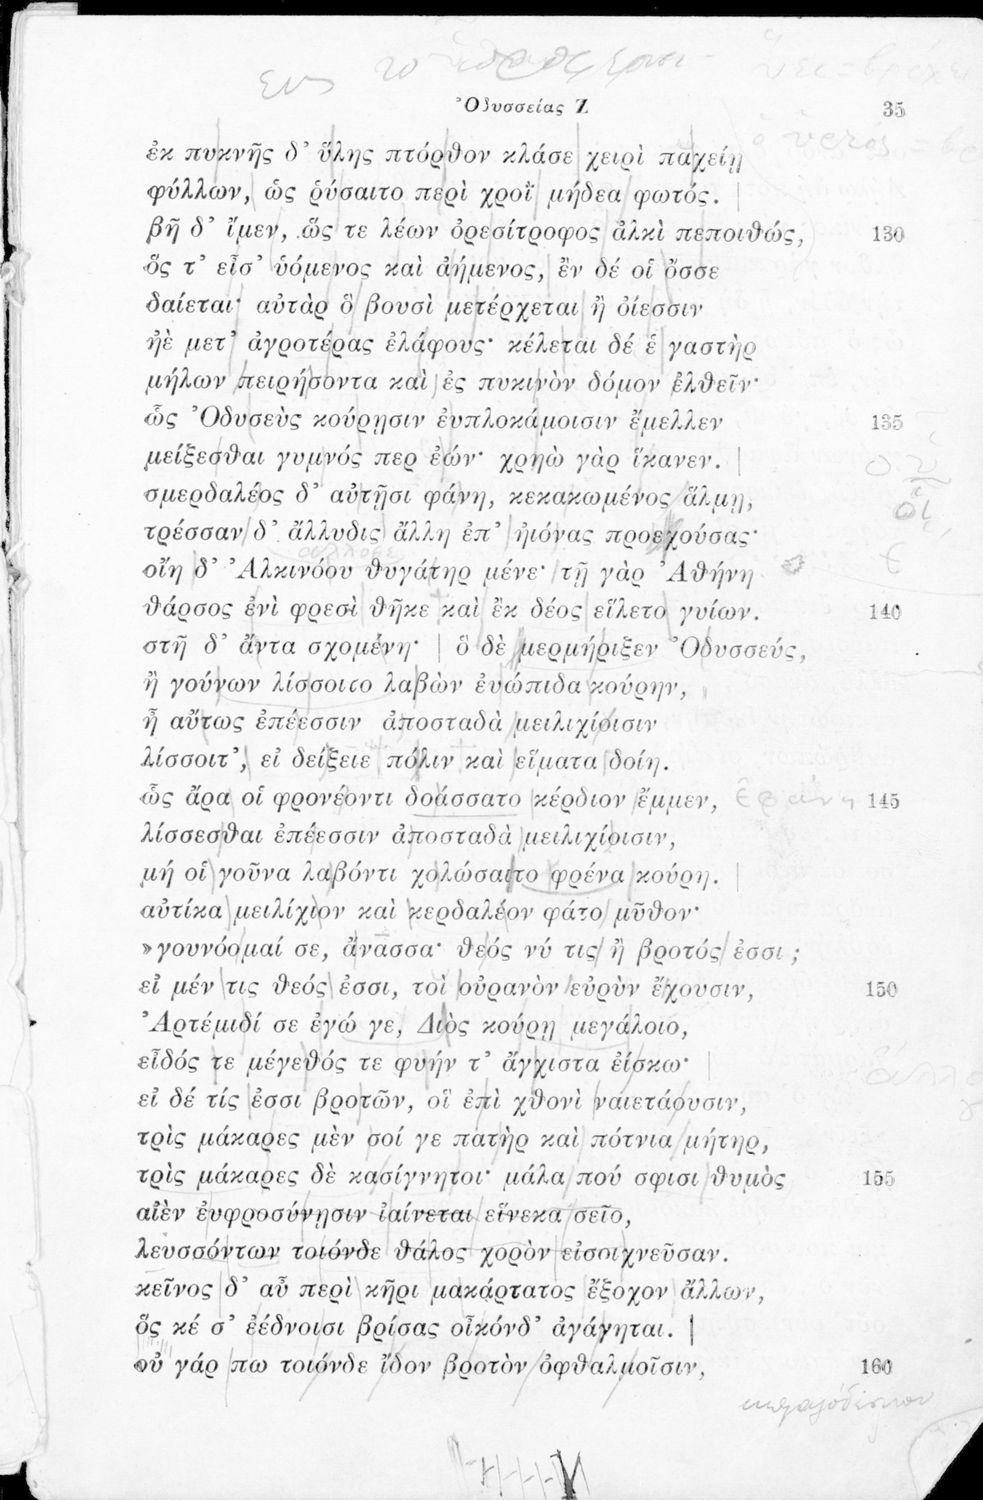 Ὀδυσσείας Ζ 35
ἐκ πυκνῆς δ' ὕλης πτόρθον κλάσε χειρὶ παχείῃ
φύλλων, ὡς ῥύσαιτο περὶ χροῒ μήδεα φωτός.
βῆ δ' ἴμεν, ὥς τε λέων ὀρεσίτροφος ἀλκὶ πεποιθώς, 130
ὅς τ' εἶσ' ὑόμενος καὶ ἀήμενος, ἐν δέ οἱ ὄσσε
δαίεται· αὐτὰρ ὃ βουσὶ μετέρχεται ἢ ὀίεσσιν
ἠὲ μετ' ἀγροτέρας ἐλάφους· κέλεται δέ ἑ γαστὴρ
μήλων πειρήσοντα καὶ ἐς πυκινὸν δόμον ἐλθεῖν·
ὣς Ὀδυσεὺς κούρῃσιν ἐυπλοκάμοισιν ἔμελλεν 135
μείξεσθαι γυμνός περ ἐών· χρηὼ γὰρ ἵκανεν.
σμερδαλέος δ' αὐτῇσι φάνη, κεκακωμένος ἅλμῃ,
τρέσσαν δ' ἄλλυδις ἄλλη ἐπ' ἠιόνας προεχούσας·
ἄλλοσε
οἴη δ' Ἀλκινόου θυγάτηρ μένε· τῇ γὰρ Ἀθήνη
θάρσος ἐνὶ φρεσὶ θῆκε καὶ ἐκ δέος εἵλετο γυίων. 140
στῆ δ' ἄντα σχομένη· | ὃ δὲ μερμήριξεν Ὀδυσσεύς,
ἢ γούνων λίσσοιτο λαβὼν ἐυώπιδα κούρην,
ἦ αὔτως ἐπέεσσιν ἀποσταδὰ μειλιχίοισιν
λίσσοιτ', εἰ δείξειε πόλιν καὶ εἵματα δοίη.
ὣς ἄρα οἱ φρονέοντι δοάσσατο κέρδιον ἔμμεν, ἐφάνη 145
λίσσεσθαι ἐπέεσσιν ἀποσταδὰ μειλιχίοισιν,
μή οἱ γοῦνα λαβόντι χολώσαιτο φρένα κούρη.
αὐτίκα μειλίχιον καὶ κερδαλέον φάτο μῦθον·
»γουνόομαί σε, ἄνασσα· θεός νύ τις ἢ βροτός ἐσσι;
εἰ μέν τις θεός ἐσσι, τοὶ οὐρανὸν εὐρὺν ἔχουσιν, 150
Ἀρτέμιδί σε ἐγώ γε, Διὸς κούρῃ μεγάλοιο,
εἶδός τε μέγεθός τε φυήν τ' ἄγχιστα ἐίσκω·
εἰ δέ τίς ἐσσι βροτῶν, οἳ ἐπὶ χθονὶ ναιετάουσιν,
τρὶς μάκαρες μὲν σοί γε πατὴρ καὶ πότνια μήτηρ,
τρὶς μάκαρες δὲ κασίγνητοι· μάλα πού σφισι θυμὸς 155
αἰὲν ἐυφροσύνῃσιν ἰαίνεται εἵνεκα σεῖο,
λευσσόντων τοιόνδε θάλος χορὸν εἰσοιχνεῦσαν.
κεῖνος δ' αὖ περὶ κῆρι μακάρτατος ἔξοχον ἄλλων,
ὅς κέ σ' ἐέδνοισι βρίσας οἶκόνδ' ἀγάγηται.
οὐ γάρ πω τοιόνδε ἴδον βροτὸν ὀφθαλμοῖσιν, 160